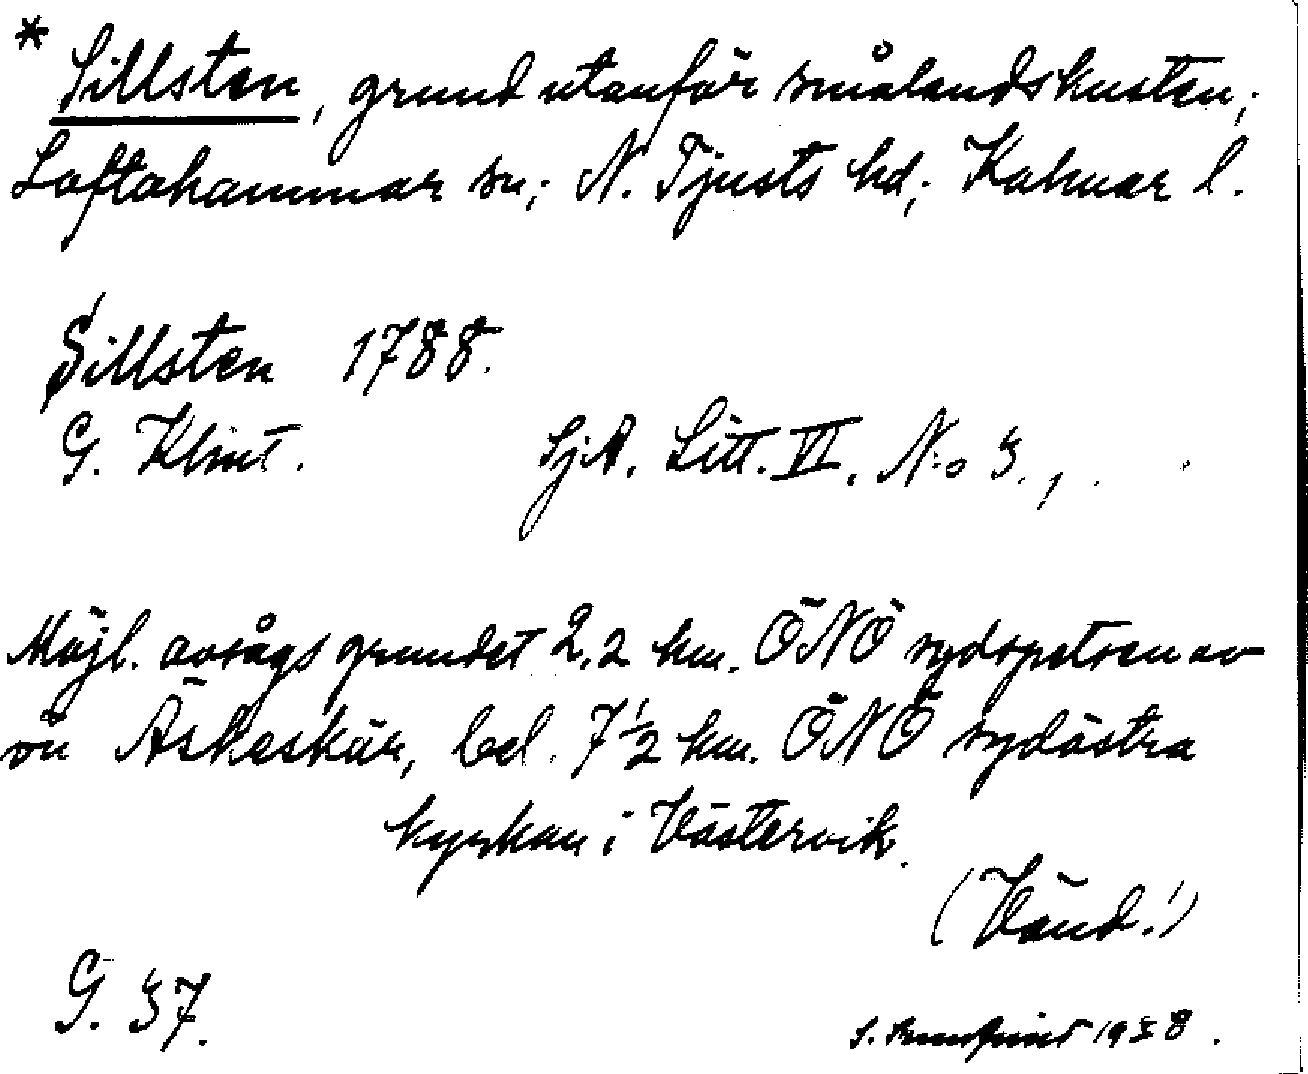 * Sillsten, grund utanför smålandskusten;
Loftahammar sn; N. Tjusts hd; Kalmar l.
Sillsten 1788.
G. Klint. SjA. Litt. VI. N:o 3.,
Möjl. avsågs grundet 2,2 km. ÖNÖ sydspetsen av
ön Äskeskär, bel. 7 1/2 km. ÖNÖ sydöstra
kyrkan i Västervik.
(Vänd!)
G. 37.
1938.